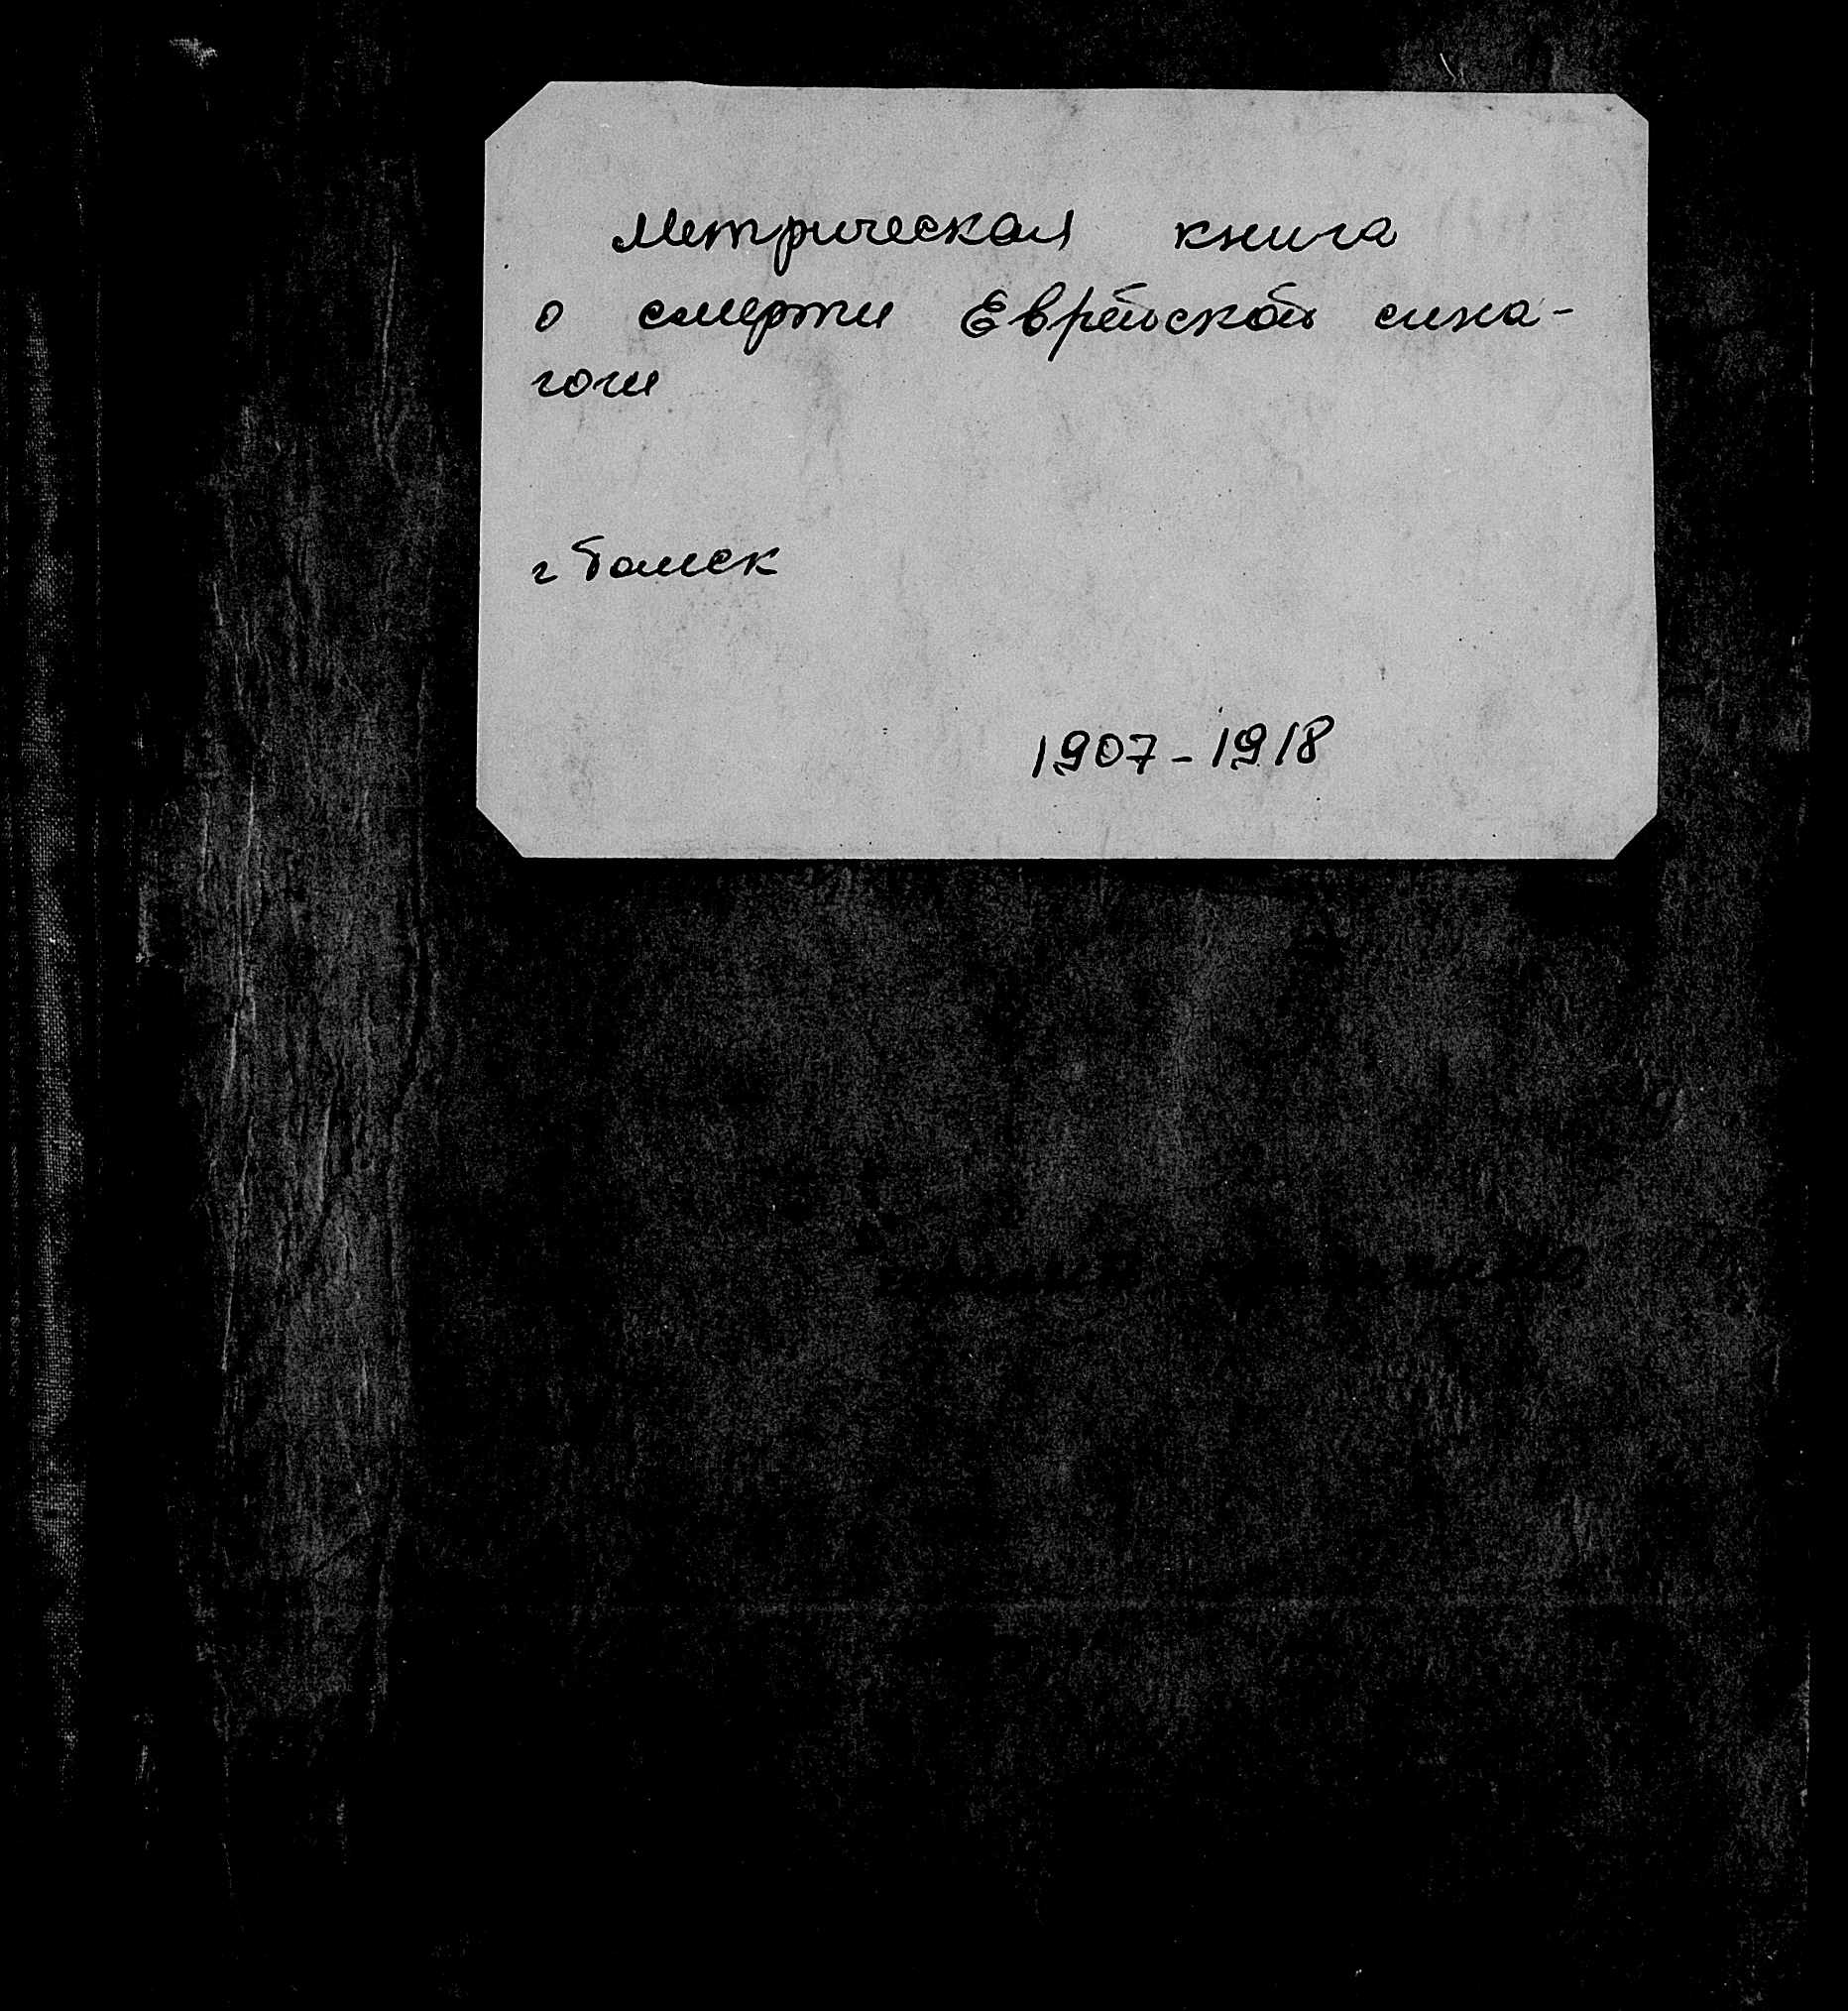 Метрическая книга
о смерти Еврейской сина-
гоги
г Томск
1907-1918